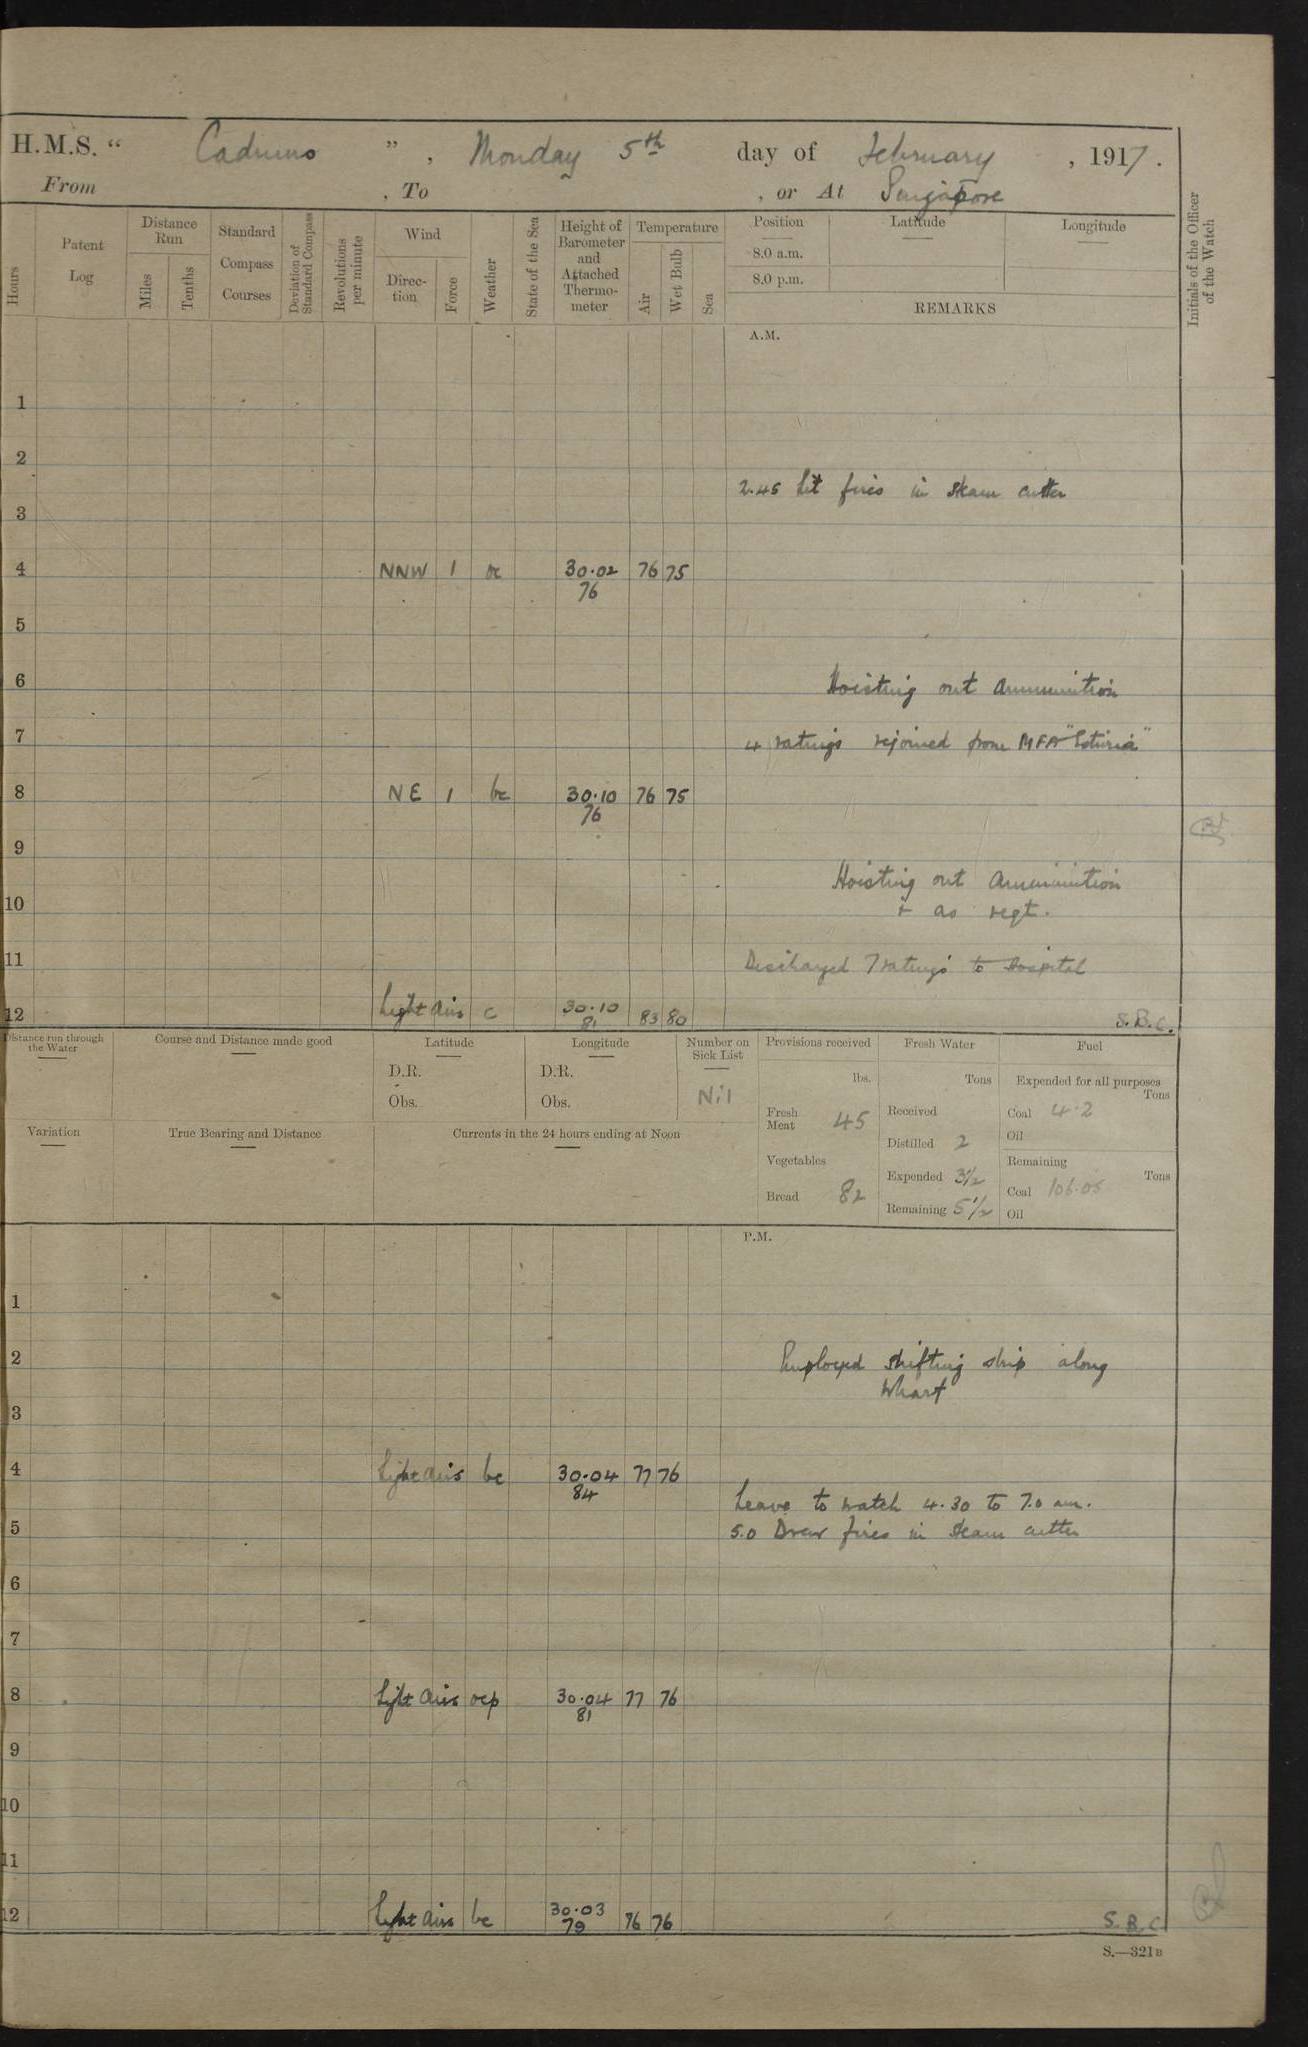 H.M.S. “ Cadmus ” , Monday 5th day of February , 1917 .
From , To , or At Singapore
Hours
Patent Log
Distance Run
Miles
Tenths
Standard Compass Courses
Deviation of Standard Compass
Revolutions per minute
Wind
Direc-tion
Force
Weather
State of the Sea
Height of Barometer and Attached Thermo-meter
Temperature
Air
Wet Bulb
Sea
Position Latitude Longitude
8.0 a.m.
8.0 p.m.
REMARKS
Initials of the Officer of the Watch
A.M.
1
2
2.45 Lit fires in steam cutter
3
4 NNW 1 oc 30.02 76 75
76
5
6 Hoisting out ammunition
7 4 ratings rejoined from MFA "
8 NE 1 bc 30.10 76 75
76
9
Hoisting out ammunition
10 & as reqt.
11 Discharged 7 ratings to hospital
12 Light airs c 30.10 83 80
81
S.B.C.
Distance run through the Water
Course and Distance made good
Latitude
D.R.
Obs.
Longitude
D.R.
Obs.
Number on Sick List
Nil
Provisions received
lbs.
Fresh Meat 45
Vegetables
Bread 82
Fresh Water
Tons
Received
Distilled 2
Expended 3½
Remaining 5½
Fuel
Expended for all purposes
Tons
Coal 4.2
Oil
Remaining
Tons
Coal 106.05
Oil
Variation
True Bearing and Distance
Currents in the 24 hours ending at Noon
P.M.
1
2 Employed shifting ship along
wharf
3
4 Light airs bc 30.04 77 76
84
Leave to watch 4.30 to 7.0 am.
5 5.0 Drew fires in steam cutter
6
7
8 Light airs ocp 30.04 77 76
81
9
10
11
12 Light airs bc 30.03 76 76
79
S.B.C.
S.—321B